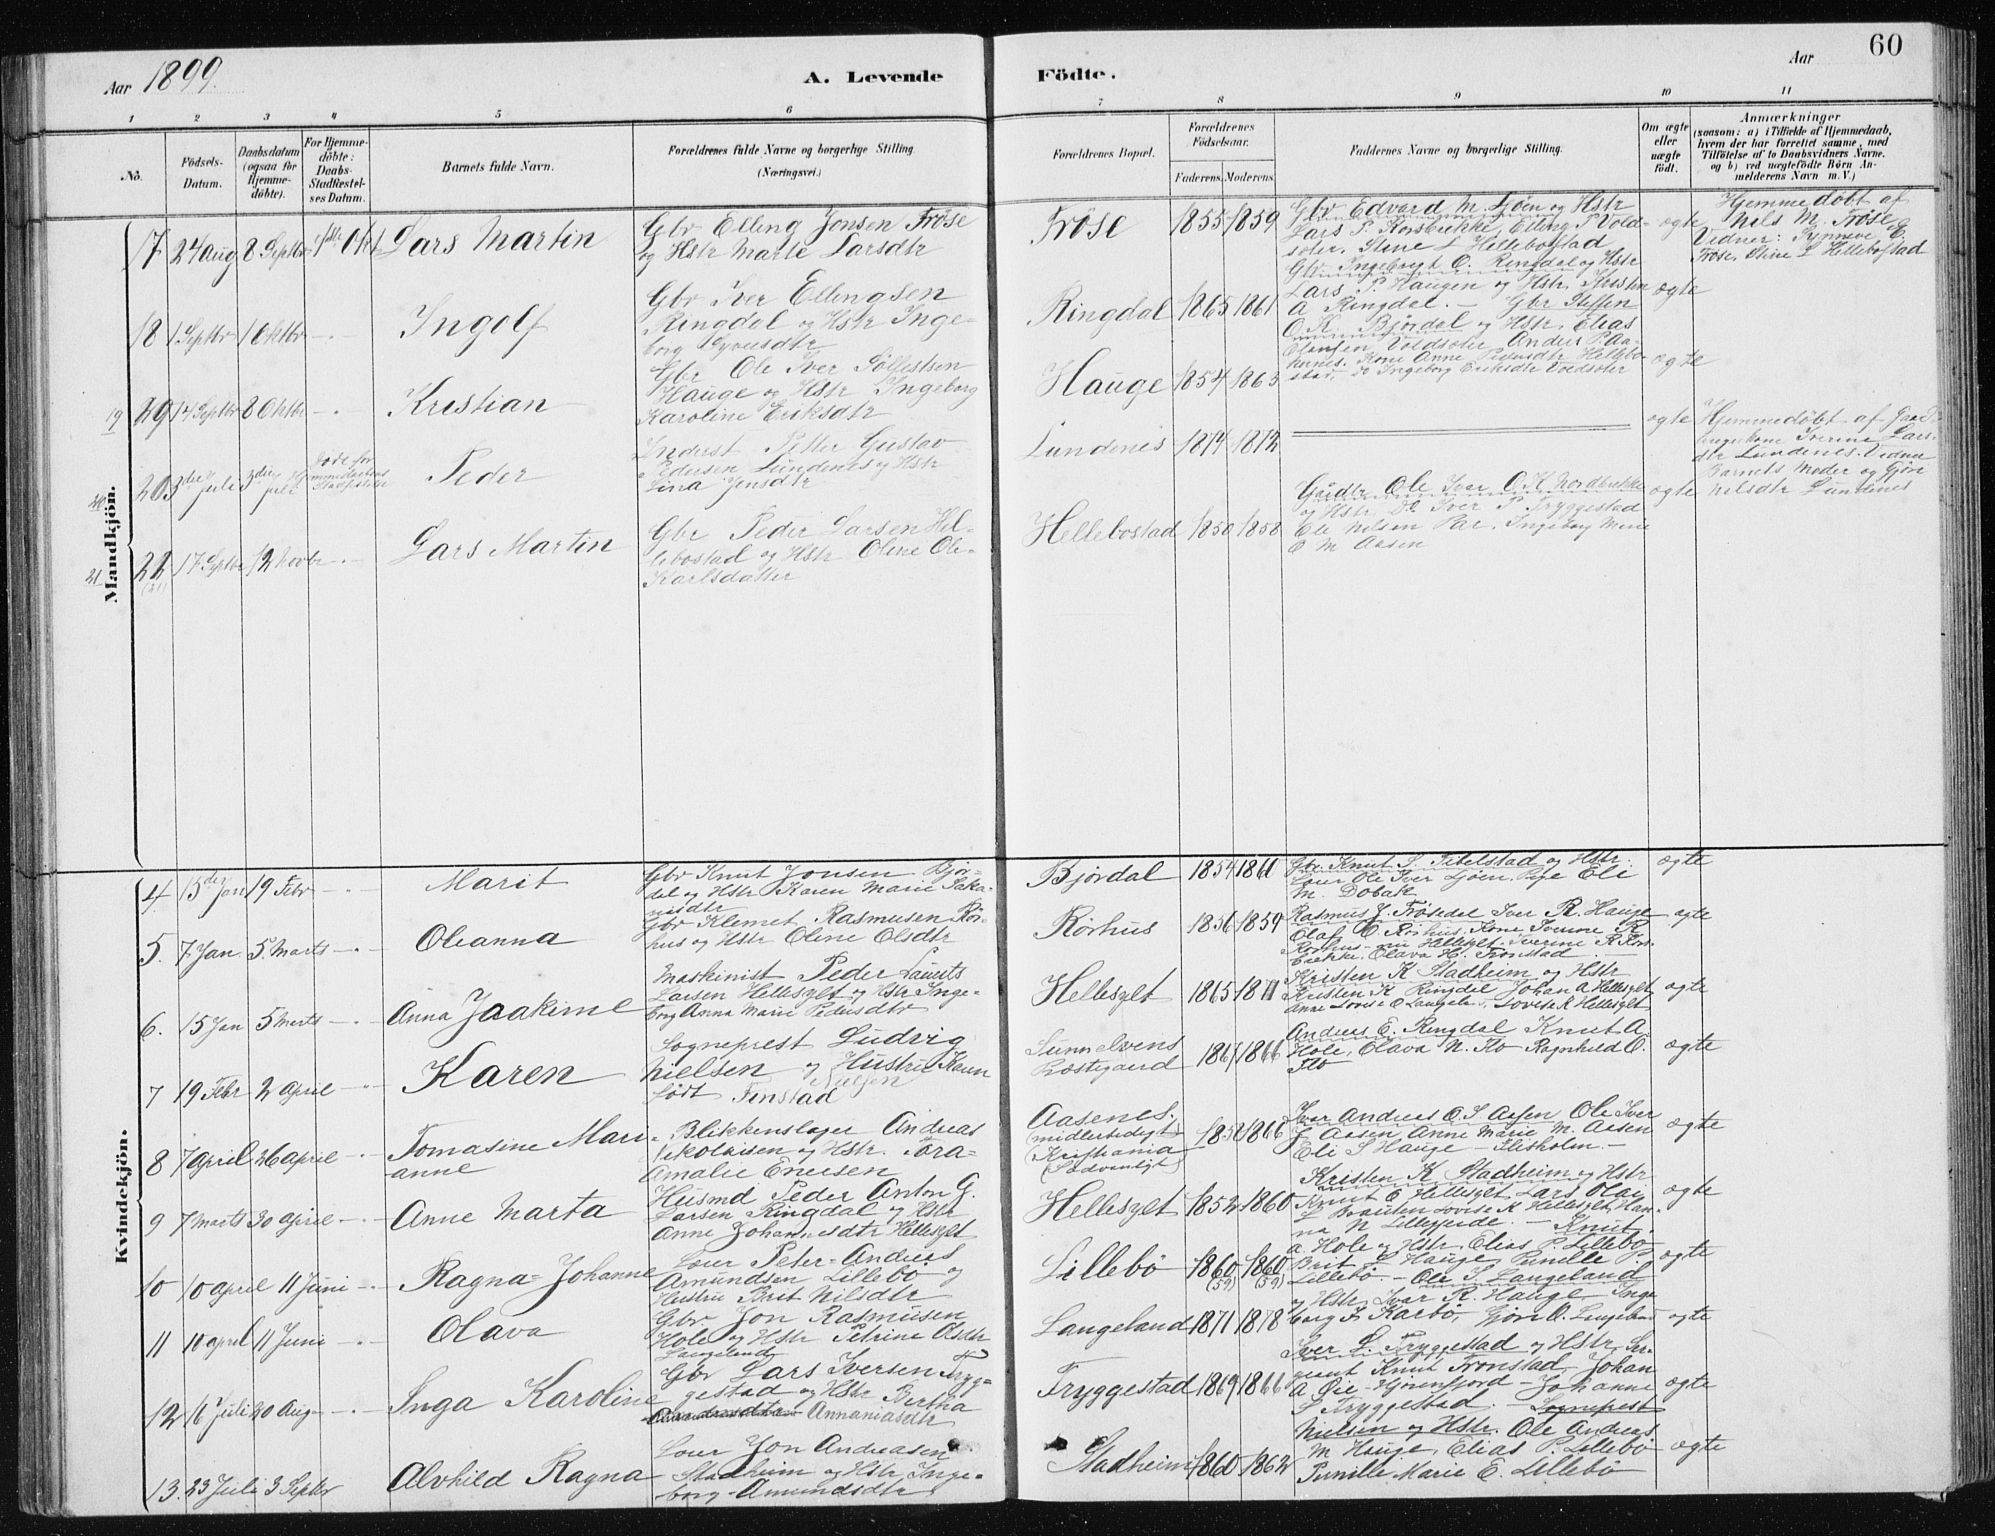 60
Aar 1899.
A. Levende
Födte.
Aar
1 2 3 4 5 6 7 8 9 10 11
No.
Födsels-
Datum.
Daabsdatum
(ogsaa for
Hjemme-
döbte).
For Hjemme-
döbte:
Daabs-
Stadfæstel-
ses Datum.
Barnets fulde Navn.
Forældrenes fulde Navne og borgerlige Stilling.
(Næringsvei.)
Forældrenes Bopæl.
Forældrenes
Födselsaar.
Faderens. Moderens.
Faddernes Navne og borgerlige Stilling.
Om ægte
eller
uægte
födt.
Anmærkninger
(saasom: a) i Tilfælde af Hjemmedaab,
hvem der har forrettet samme, med
Tilföielse af to Daabsvidners Navne,
og b) ved uægtefödte Börn An-
melderens Navn m. V.)
Mandkjön.
17 24 Aug 8 Septbr 1ste Okt
Lars Martin
Gbr Elling Jonsen Frøse
og Hstr Marte Larsdtr
Frøse
1855 1859
Gbr Edvard M. Ljøen og Hstr
Lars P. Korsbrekke, Elling P Vold-
sæter, Stene L Hellebostad
ægte
Hjemmedøbt af
Nils M. Frøse
Vidner: Synneve E.
Frøse, Oline L Hellebostad
18 1 Septbr 1 Oktbr
Ingolf
Gbr Iver Ellingsen
Ringdal og Hstr Inge-
borg
Ringdal
1865 1861
Gbr Ingebrigt O. Ringdal og Hstr
Lars P. Haugen og Hstr, Kirsten
A Ringdal. —
ægte
19 20 14 Septbr 8 Oktbr
Kristian
Gbr Ole Iver Søllestsen
Hauge og Hstr Ingeborg
Karoline Eriksdtr
Hauge
1854 1863
Gbr Steffen
O. K. Bjørdal og Hstr, Elias
Anne Pedersdtr Hellebo-
stad, do Ingeborg Eriksdtr Voldsæter
ægte
20 20 3die Juli 3die Juli
Døde før
Hjemmedaabens
Stadfæstelse
Peder
Inderst Petter Gustav
Pedersen Lundenes og Hstr
Lina Jensdtr
Lundenes
1874 1872
ægte
Hjemmedøbt af
Iverine Lars-
dtr Lundenes. Vidner
Barnets Moder og Gjøre
Nilsdtr Lundenes
21 22 (21) 17 Septbr 12 Novbr
Lars Martin
Gbr Peder Larsen Hel-
lebostad og Hstr Oline Ole-
Karlsdatter
Hellebostad
1850 1858
Gårdbr Ole Iver O. K. Nordbrekke
og Hstr. Do Iver P Tryggestad
Ole Nilsen Par. Ingeborg Marie
O M Aasen
ægte
Kvindekjön.
4. 15der Jan 19 Febr
Marit
Gbr Knut Jonsen Bjør-
dal og Hstr Karen Marie Saka-
riasdtr
Bjørdal
1854 1861
Gbr. Knut S. Tibelstad og Hstr.
Ole Iver Ljøen, Pige Eli
M. Dobak
ægte
5. 7 Jan 5 Marts
Oleanna
Gbr Klemet Rasmusen Rør-
hus og Hstr Oline Olsdtr
Rørhus
1856 1859
Rasmus J. Frøsedal Iver R. Hauge
Olaf O. Rørhus. Kone Iverine R
Rørhus — nu Hellesylt. Iverine R Kors-
brekke. Olava H. Tronstad
ægte
6. 15 Jan 5 Marts
Anna Joakime
Maskinist Peder Laurits
Larsen Hellesylt og Hstr Inge-
borg Anna Marie Pedersdtr
Hellesylt
1865 1871
Kristen K Stadheim og Hstr
Kristen K Ringdal Johan A Hellesylt
Anne Lovise O Langela. Lovise K Hellesylt
ægte
7 19 Febr 2 April
Karen
Sogneprest Ludvig
Nielsen og Hustru Karen
Nielsen
født Finstad
Sunnelvens
Præstegaard
1861 1866
Andreas E. Ringdal Knut A.
Hole, Olava N. Flo Ragnhild O.
Flo
ægte
8 7 April 26 April
Tomasine Mari-
anne
Blikkenslager Andreas
Nikolaisen og Hstr. Tora
Amalie Enersen
Aasenes.
(midlertidigt)
Kristiania
(Sædvanligt)
1866
Iver Andreas O. S. Aasen Ole Iver
J Aasen, Anne Marie M. Aasen
Eli S Hauge —
ægte
9 7 Marts 30 April
Anne Marta
Husmd Peder Anton G.
Larsen Ringdal og Hstr
Anne Johannesdtr Hellesylt
Hellesylt
1852 1860
Kristen K Stadheim og Hstr
Knut O Hellesylt, Lars Olai
L Lovise K Hellesylt, Han-
na N Lillejeide. —
ægte
10 10 April 11 Juni
Ragna Johanne
Peter Andreas
Amundsen Lillebø og
Hustru Brit Nilsdtr
Lillebö
1860 1860
(59) (59)
Knut
A. Hole og Hstr Elias P. Lillebø
Brit L Hauge, Pernille P
Lillebø. —
ægte
11 10 April 11 Juni
Olava
Gbr Jon Rasmusen
Hole og Hstr Petrine Olsdtr
Langeland
Langeland
1871 1878
Ole S Langeland
og Hstr, Ivar R. Hauge, Inge-
borg J. Karbø, Gjøri O. Langeland
ægte
12 16 Juli 20 Aug
Inga Karoline
Gbr Lars Iversen Tryg-
gestad og Hstr Bertha
Annaniasdtr
Tryggestad
1869 1866
Iver L. Tryggestad og Hstr, Ser-
geant Knut Tronstad, Johan
A Øie - Hjørenfjord - Johanne
L Tryggestad. —
ægte
13. 23 Juli 3 Septbr
Alvhild Ragna
Jon Andreasen
Stadheim og Hstr Inge-
borg Amundsdtr
Stadheim
1860 1862
Sogneprest
Nielsen og Hstr. Ole Andreas
M. Hauge, Elias P. Lillebø
Pernille Marie E. Lillebø
ægte